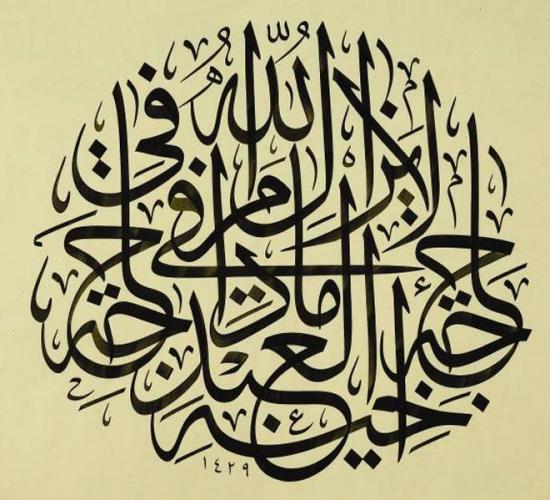 لا يزال الله في حاجة العبد مادام في حاجة أخيه
١٤٢٩